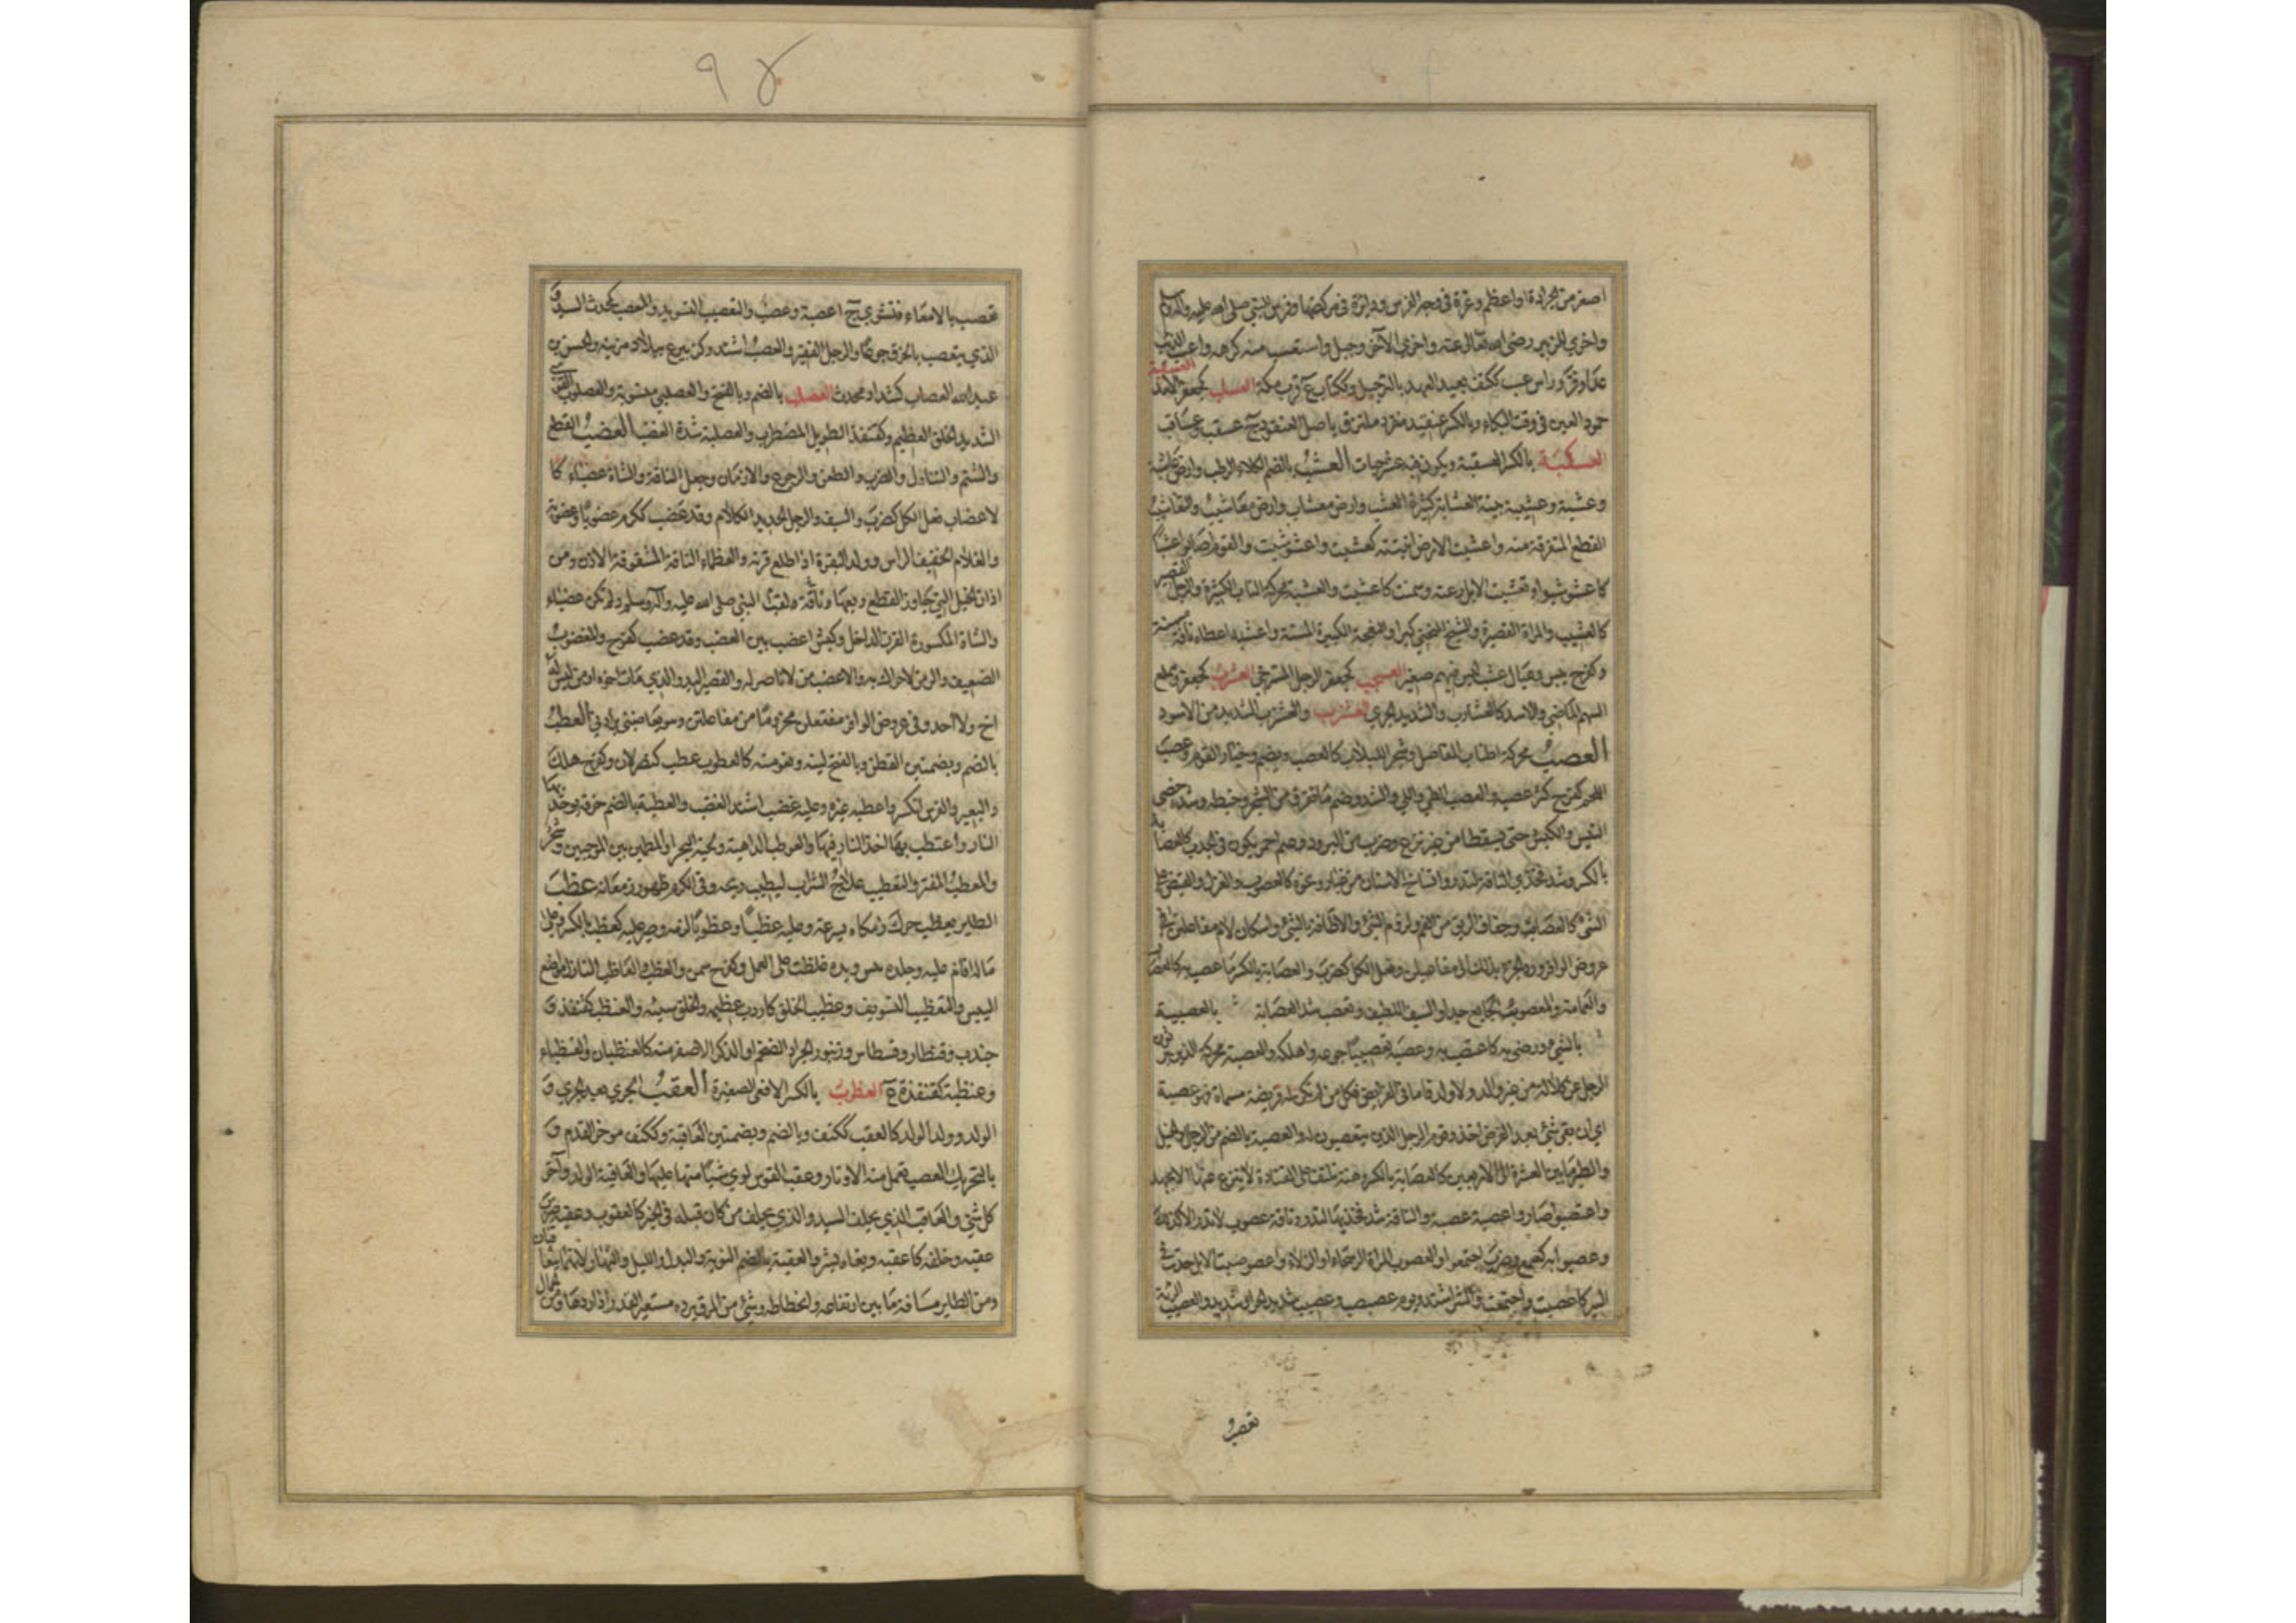 اصغر من الجرادة او اعظم وغرة في وجه الفرس ودائرة في مركضها وفرس للنبي صلى الله عليه وآله وسلم
واخرى للزبير رضى الله تعالى عنه واخرى لآخر وجبل واستعسب منه كرهه واعسب الذئب
عدا وفر وراس عسب ككتف بعيد العهد بالترجيل وككتاب ع قرب مكة العسلب كجعفر
جمود العين في وقت البكاء وبالكسر عنيقيد منفرد ملتزق باصل العنقود ج عسقب وعساقب
العسكبة بالكسر العسقبة ويكون فيه عشر حبات العشب بالضم الكلاء الرطب وارض عاشبة
وعشبة وعشيبة بينة العشابة كثيرة العشب وارض معشاب وارض معاشيب والتعاشيب
القطع المتفرقة منه واعشبت الارض انبتته كعشبت واعشوشبت والقوم اصابوا عشبا
كاعشوشبوا وتعشبت الابل رعته وسمنت كاعشبت والعشبة محركة الناب الكبيرة والرجل القصير
كالعشيب والمراة القصيرة والشيخ المنحني كبرا والنعجة الكبيرة المسنة واعشبه اعطاه ناقة مسنة
وكفرح يبس وعيال عشب ليس فيهم صغير العشجب كجعفر الرجل المسترخي العشرب كجعفر
السهم الماضي والاسد كالعشارب والشديد الجري العشزب والعشزب الشديد من الاسود
العصب محركة اطناب المفاصل وشجر اللبلاب كالعصب ويضم وخيار القوم وعصب
اللحم كفرح كثر عصبه والعصب الطي واللي والشد وضم ما تفرق من الشجر وخبطه وشد خصى
التيس والكبش حتى يسقطا من غير نزع وضرب من البرود وغيم احمر يكون في الجدب كالعصابة
بالكسر وشد فخذي الناقة لتدر واتساخ الاسنان من غبار ونحوه كالعصوب والغزل والقبض على
الشئ كالعصاب وجفاف الريق من الفم ولزوم الشئ والاطافة بالشئ واسكان لام مفاعلتن في
عروض الوافر ورد الجزء بذلك الى مفاعيلن وفعل الكل كضرب والعصابة بالكسر ما عصب به كالعصاب
والعمامة والمعصوب الجايع جدا والسيف اللطيف وتعصب شد العصابة بالعصبية
بالشئ ورضى به كاعتصب به وعصبه تعصيبا جوعه واهلكه والعصبة محركة الذين يرثون
الرجل عن كلالة من غير والد ولا ولد فاما في الفرائض فكل من لم تكن له فريضة مسماة فهو عصبة
اي ان بقى شئ بعد الفرض اخذ وقوم الرجل الذين يتعصبون له والعصبة بالضم من الرجال والخيل
والطير ما بين العشرة الى الاربعين كالعصابة بالكسر وهنة تلتف على القتادة لا تنزع عنها الا بجهد
واعتصبوا صاروا عصبة عصبة والناقة شد فخذيها لتدر وناقة عصوب لا تدر الا كذلك
وعصبوا به كسمع وضرب اجتمعوا والعصوب المراة الرسحاء او الزلاء واعصوصبت الابل جدت في
السير كاعصبت واجتمعت والشر اشتد ويوم عصبصب وعصيب شديد الحر او شديد والعصيب الرئة
تعصب
٩٤
تعصب بالامعاء فتشوي ج اعصبة وعصب والتعصيب التسويد والمعصب كمحدث السيد و
الذي يتعصب بالخرق جوعا والرجل الفقير والعصب اشتد وكزبير ع ببلاد مزينة والحسن بن
عبد الله العصاب كشداد محدث العصلب بالضم وبالفتح والعصلبي منسوبة والعصلوب القوي
الشديد الخلق العظيم وكقنفذ الطويل المضطرب والعصلبة شدة الغضب العضب القطع
والشتم والتناول والضرب والطعن والرجوع والازمان وجعل الناقة والشاة عضباء كا
لاعضاب فعل الكل كضرب والسيف والرجل الحديد الكلام وقد عضب ككرم عضوبا وعضوبة
والغلام الخفيف الراس وولد البقرة اذا طلع قرنه والعضباء الناقة المشقوقة الاذن ومن
اذان الخيل التي يجاوز القطع ربعها وناقة ولقب ناقة النبي صلى الله عليه وآله وسلم ولم تكن عضباء
والشاة المكسورة القرن الداخل وكبش اعضب بين العضب وقد عضب كفرح والمعضوب
الضعيف والزمن لا حراك به والاعضب من لا ناصر له والقصير اليد والذي مات اخوه او من ليس له
اخ ولا احد وفي عروض الوافر مفتعلن مخروما من مفاعلتن وهو يعاضبني يرادني العطب
بالضم وبضمتين القطن وبالفتح لينه ونعومته كالعطوب عطب كنصر لان وكفرح هلك
والبعير والفرس انكسر واعطبه غيره وعليه غضب اشد الغضب والعطبة بالضم خرقة توخذ بها
النار واعتطب بها اخذ النار فيها والعوطب الداهية ولجة البحر او المطمئن بين الموجين وشجر
والمعطب المقتر والتعطيب علاج الشراب ليطيب ريحه وفي الكرم ظهور زمعاته عظب
الطاير يعظب حرك زمكاه بسرعة وعليه عظبا وعظوبا لزمه وصبر عليه كعظب بالكسر وعلى
ماله اقام عليه وجلده يبس ويده غلظت على العمل وكفرح سمن والعظب والعاظب النازل مواضع
اليبس والتعظيب التسويف وعظيب الخلق كاردب عظيمه والخلق سيئه والعنظب كقنفذ و
جندب وقنطار وقسطاس وزنبور الجراد الضخم او الذكر الاصفر منه كالعنظبان والعنظباء
وعنظبة كقنفذة ع العظرب بالكسر الافعى الصغيرة العقب الجري بعد الجري و
الولد وولد الولد كالعقب ككتف وبالضم وبضمتين العاقبة وككتف موخر القدم و
بالتحريك العصب تعمل منه الاوتار وعقب القوس لوي شيا منها عليها والعاقبة الولد وآخر
كل شئ والعاقب الذي يخلف السيد والذي يخلف من كان قبله في الخير كالعقوب وعقبه ضرب
عقبه وخلفه كاعقبه وبغاه بشر والعقبة بالضم النوبة والبدل والليل والنهار لانهما يتعاقبان
ومن الطاير مسافة ما بين ارتفاعه وانحطاطه وشئ من المرق يرده مستعير القدر اذا ردها ومن الجمال